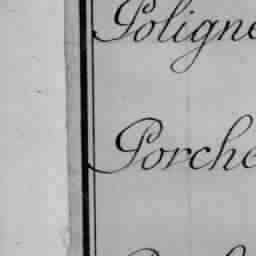 Poligne
Porche